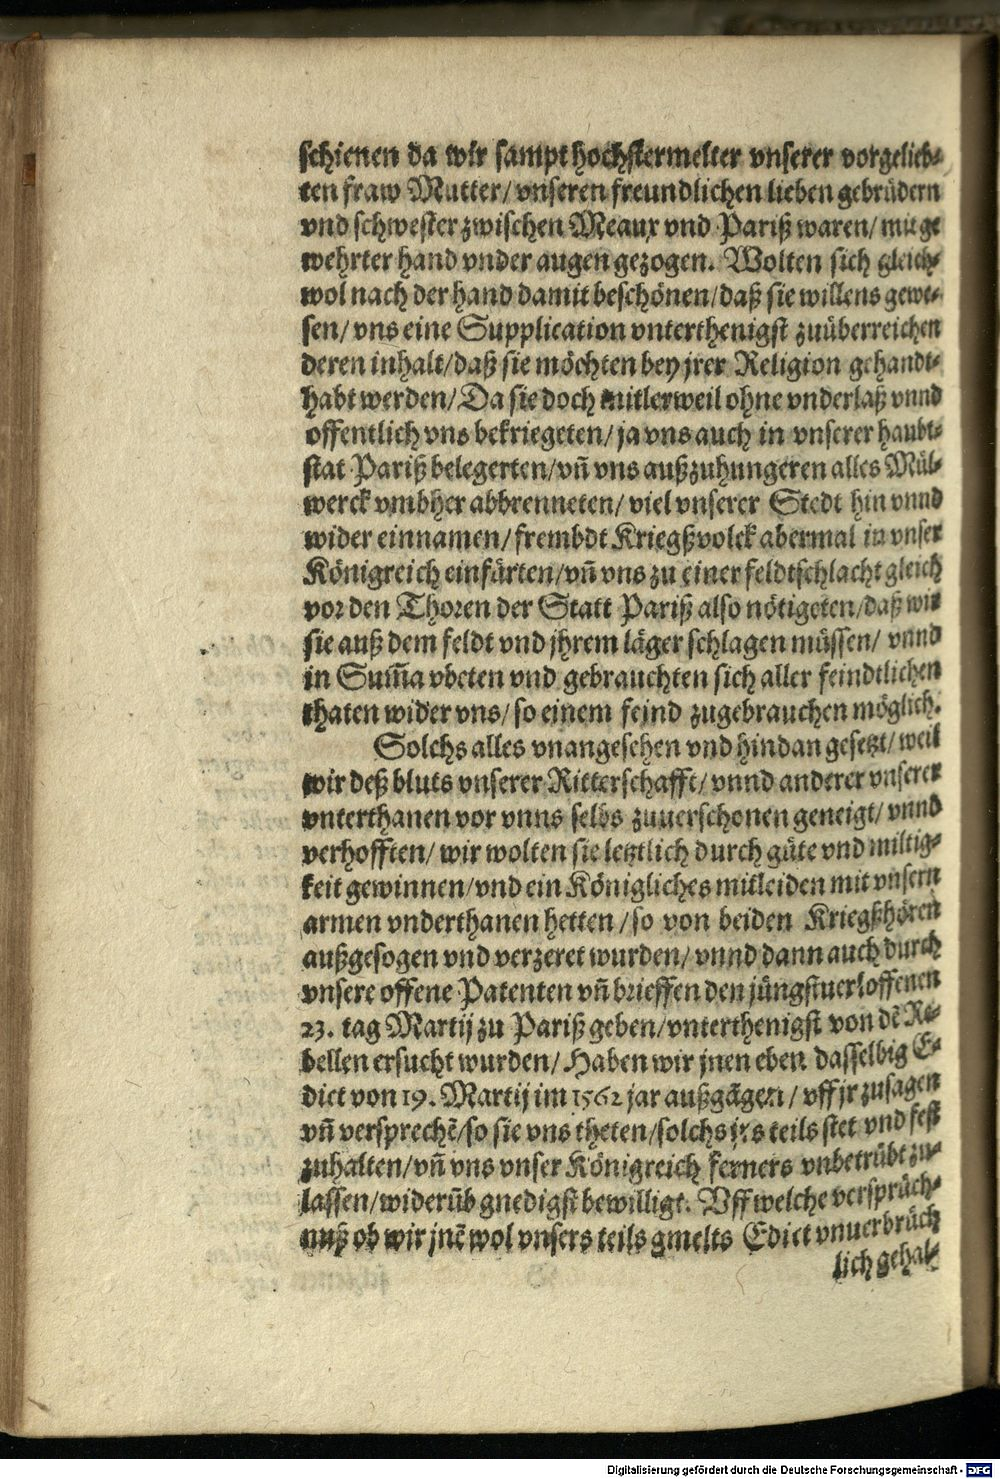 schienen da wir sampt hochstermelter vnserer vorgelieb-
ten fraw Mutter/ vnseren freundlichen lieben gebrüdern
vnd schwester zwischen Meaux vnd Pariß waren/ mit ge
wehrter hand vnder augen gezogen. Wolten sich gleich-
wol nach der hand damit beschönen/ daß sie willens gewe-
sen/ vns eine Supplication vnterthenigst zuüberreichen
deren inhalt/ daß sie möchten bey jrer Religion gehandt-
habt werden/ Da sie doch mitlerweil ohne vnderlaß vnnd
offentlich vns bekriegeten/ ja vns auch in vnserer haubt-
stat Pariß belegerten/ vn̄ vns außzuhungeren alles Mül-
werck vmbher abbrenneten/ viel vnserer Stedt hin vnnd
wider einnamen/ frembdt Kriegßvolck abermal in vnser
Königreich einfürten/ vn̄ vns zu einer feldtschlacht gleich
vor den Thoren der Statt Pariß also nötigeten/ daß wir
sie auß dem feldt vnd jhrem läger schlagen müssen/ vnnd
in Sum̄a vbeten vnd gebrauchten sich aller feindtlichen
thaten wider vns/ so einem feind zugebrauchen möglich.
Solchs alles vnangesehen vnd hindan gesetzt/ weil
wir deß bluts vnserer Ritterschafft/ vnnd anderer vnserer
vnterthanen vor vnns selbs zuuerschonen geneigt/ vnnd
verhofften/ wir wolten sie letztlich durch güte vnd miltig-
keit gewinnen/ vnd ein Königliches mitleiden mit vnsern
armen vnderthanen hetten/ so von beiden Kriegßhören
außgesogen vnd verzeret wurden/ vnnd dann auch durch
vnsere offene Patenten vn̄ brieffen den jüngstuerloffenen
23. tag Martij zu Pariß geben/ vnterthenigst von dē Re-
bellen ersucht wurden/ Haben wir jnen eben dasselbig E-
dict von 19. Martij im 1562 jar außgāgen/ vff jr zusagen
vn̄ versprechē/ so sie vns theten/ solchs jrs teils stet vnd fest
zuhalten/ vn̄ vns vnser Königreich ferners vnbetrübt zu-
lassen/ widerūb gnedigst bewilligt. Vff welche versprüch-
nuß ob wir jnē wol vnsers teils gmelts Edict vnuerbrüch
lich gehal-
Digitalisierung gefördert durch die Deutsche Forschungsgemeinschaft - DFG